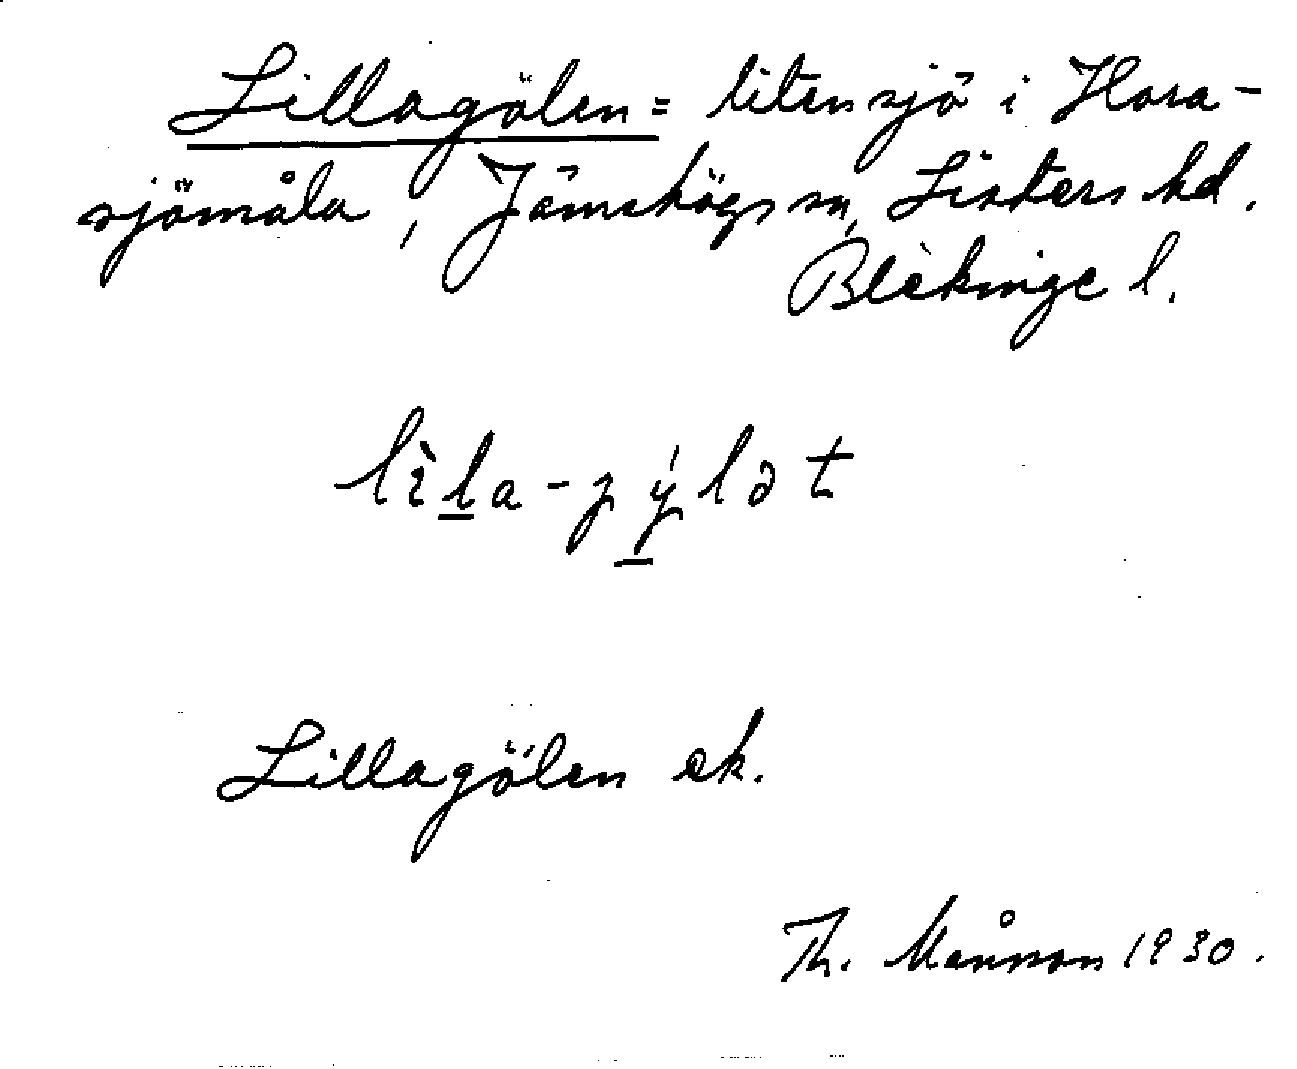 Lillagölen = liten sjö i Hara-
sjömåla, Jämshögs sn, Listers hd.
Blekinge l.
lìla-gýlət
Lillagölen ek.
Th. Månson 1930.